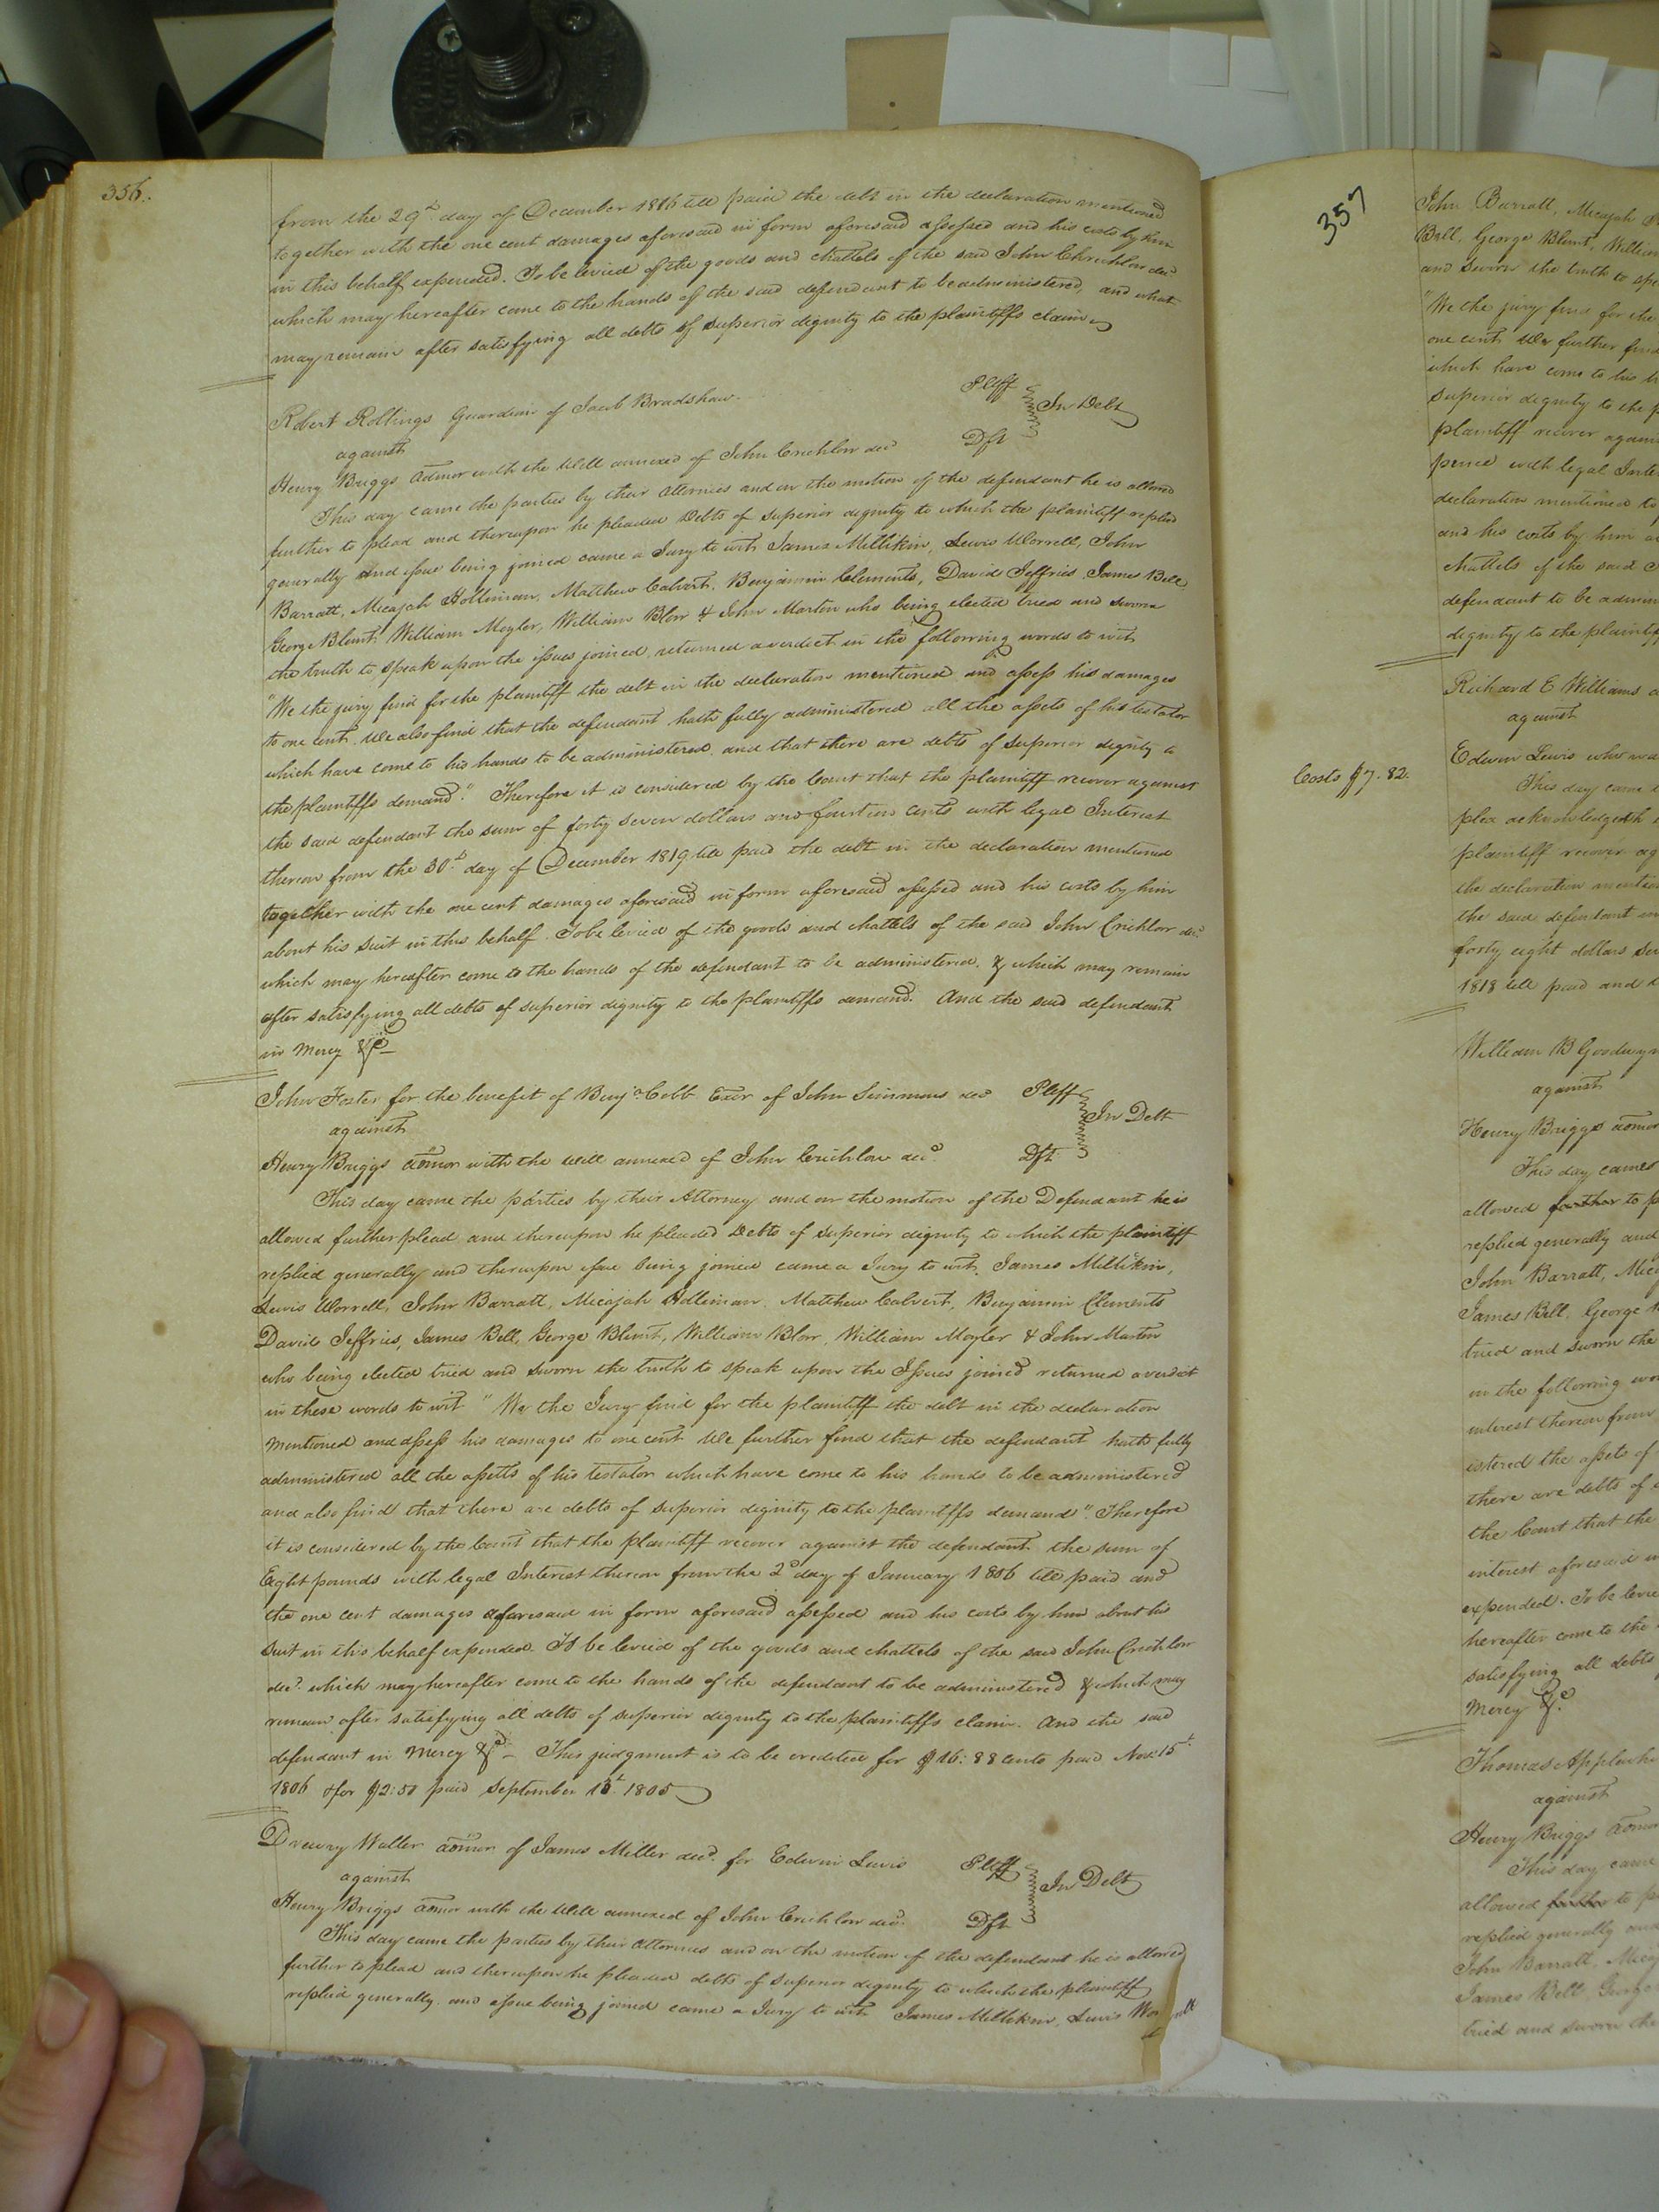 356.
from the 29th day of December 1816 till paid the debt in the declaration mentioned
together with the one cent damages aforesaid in form aforesaid assessed and his costs by him
in this behalf expended. To be levied of the goods and chattels of the said John Chrichlow decd
which may hereafter come to the hands of the said defendant to be administered, and what
may remain after satisfying all debts of superior dignity to the plaintiffs claim
Robert Rollings Guardian of Jacob Bradshaw. Plff
against In Debt
Henry Briggs admor with the Will annexed of John Crichlow decd Dft
This day came the parties by their Attornies and on the motion of the defendant he is allowed
further to plead and thereupon he pleaded Debts of superior dignity to which the plaintiff replied
generally and issue being joined came a Jury to wit James Millikin, Lewis Worrell, John
Barratt, Micajah Holliman, Matthew Calvert, Benjamin Clements, David Jeffries James Bell
George Blunt, William Moyler, William Blow & John Marton who being elected tried and sworn
the truth to speak upon the issues joined, returned a verdict in the following words to wit
"We the jury find for the plaintiff the debt in the declaration mentioned and assess his damages
to one cent. We also find that the defendant hath fully administered all the assets of his testator
which have come to his hands to be administered and that there are debts of superior dignity to
the plaintiffs demand." Therefore it is considered by the Court that the plaintiff recover against
the said defendant the sum of forty seven dollars and fourteen cents with legal Interest
thereon from the 30th day of December 1819 till paid the debt in the declaration mentioned
together with the one cent damages aforesaid in form aforesaid assessed and his costs by him
about his suit in this behalf. To be levied of the goods and chattels of the said John Crichlow decd
which may hereafter come to the hands of the defendant to be administered. & which may remain
after satisfying all debts of superior dignity to the plaintiffs demand. And the said defendant
in Mercy &c
John Foster for the benefit of Benja Cobb Exor of John Simmons decd Plff
against In Debt
Henry Briggs admor with the Will annexed of John Crichlow decd. Dft
This day came the parties by their Attorney and on the motion of the Defendant he is
allowed further plead and thereupon he pleaded Debts of superior dignity to which the plaintiff
replied generally and thereupon issue being joined came a Jury to wit. James Millikin,
Lewis Worrell, John Barratt, Micajah Holliman, Matthew Calvert, Benjamin Clements
David Jeffries, James Bell, George Blunt, William Blow, William Moyler & John Marton
who being elected tried and sworn the truth to speak upon the Issues joined returned a verdict
in these words to wit "We the Jury find for the plaintiff the debt in the declaration
mentioned and assess his damages to one cent We further find that the defendant hath fully
administered all the assetts of his testator which have come to his hands to be administered
and also find that there are debts of superior dignity to the plaintiffs demand". Therefore
it is considered by the Court that the plaintiff recover against the defendant the sum of
Eight pounds with legal Interest thereon from the 2d day of January 1806 till paid and
the one cent damages aforesaid in form aforesaid assessed and his costs by him about his
suit in this behalf expended. To be levied of the goods and chattels of the said John Crichlow
decd. which may hereafter come to the hands of the defendant to be administered & which may
remain after satisfying all debts of superior dignity to the plaintiffs claim. And the said
defendant in Mercy &c - This judgment is to be credited for $16:88 cents paid Nov: 15th
1806 & for $2:50 paid September 13th 1805
Drewry Waller admor of James Miller decd. for Edwin Lewis Plff
against In Debt
Henry Briggs admor with the Will annexed of John Crichlow decd. Dft
This day came the parties by their Attornies and on the motion of the defendant he is allowed
further to plead and thereupon he pleaded debts of superior dignity to which the plaintiff
replied generally. and issue being joined came a Jury to wit James Millikin, Lewis Worrell
357
John Barratt, Micajah
Bell, George Blunt, William
and sworn the truth to spe
"We the jury find for the
one cent We further find
which have come to his h
superior dignity to the p
plaintiff recover again
pence with legal Inte
declaration mentioned to
and his costs by him a
chattels of the said
defendant to be admin
dignity to the plaintif
Richard E Williams
against
Edwin Lewis who wa
Costs $7.82.
This day came
plea acknowledgeth
plaintiff recover ag
the declaration mentio
the said defendant in
forty eight dollars se
1818 till paid and
William B Goodwyn
against
Henry Briggs admor
This day came
allowed further to p
replied generally and
John Barratt, Mic
James Bell, George
tried and sworn the
in the following wor
interest thereon from
istered the assets of
there are debts of
the Court that the
interest aforesaid
expended. To be levie
hereafter come to the
satisfying all debts
Mercy &c.
Thomas Applewh
against
Henry Briggs admor
This day came
allowed further to p
replied generally and
John Barratt, Mica
James Bell George
tried and sworn the